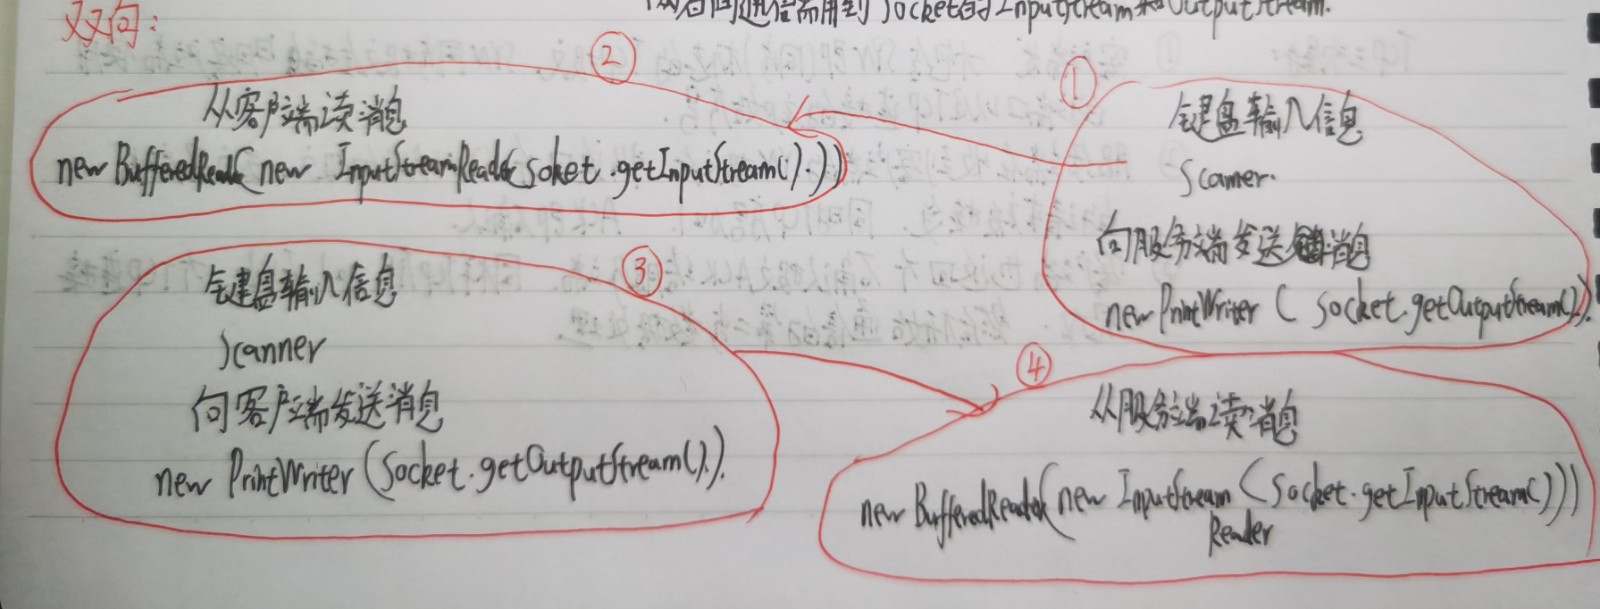 双向:
问通信需用到 Socket的InputStream和OutputStream.
②
从客户端读消息
new BufferedReade(new InputStreamReader(soket.getInputStream().)))
①
键盘输入信息
Scanner.
向服务端发送消息
new PrintWriter ( socket.getOutputStream()).
③
键盘输入信息
Scanner
向客户端发送消息
new PrintWriter (Socket.getOutputStream().).
④
从服务端读消息
new BufferedReader(new InputStream (Socket.getInputStream()))
Reader